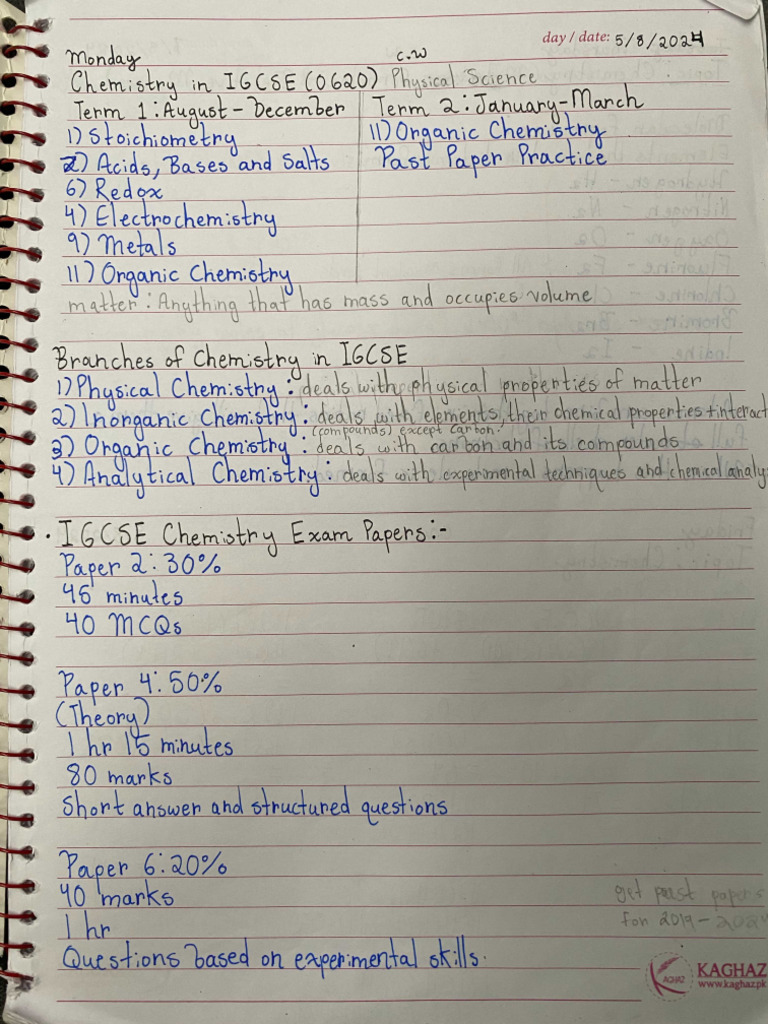 day / date: 5/8/2024
Monday c.w
Chemistry in IGCSE (0620) Physical Science
Term 1: August - December Term 2: January-March
1) Stoichiometry 11) Organic Chemistry
2) Acids, Bases and Salts Past Paper Practice
6) Redox
4) Electrochemistry
9) Metals
11) Organic Chemistry
matter: Anything that has mass and occupies volume
Branches of Chemistry in IGCSE
1) Physical Chemistry: deals with physical properties of matter
2) Inorganic Chemistry: deals with elements, their chemical properties + interact
(compounds) except carbon.
3) Organic Chemistry: deals with carbon and its compounds
4) Analytical Chemistry: deals with experimental techniques and chemical analy
• IGCSE Chemistry Exam Papers:-
Paper 2: 30%
45 minutes
40 MCQs
Paper 4: 50%
(Theory)
1 hr 15 minutes
80 marks
Short answer and structured questions
Paper 6: 20%
40 marks
1 hr
Questions based on experimental skills.
get past papers
for 2019-2024
KAGHAZ
KAGHAZ
www.kaghaz.pk